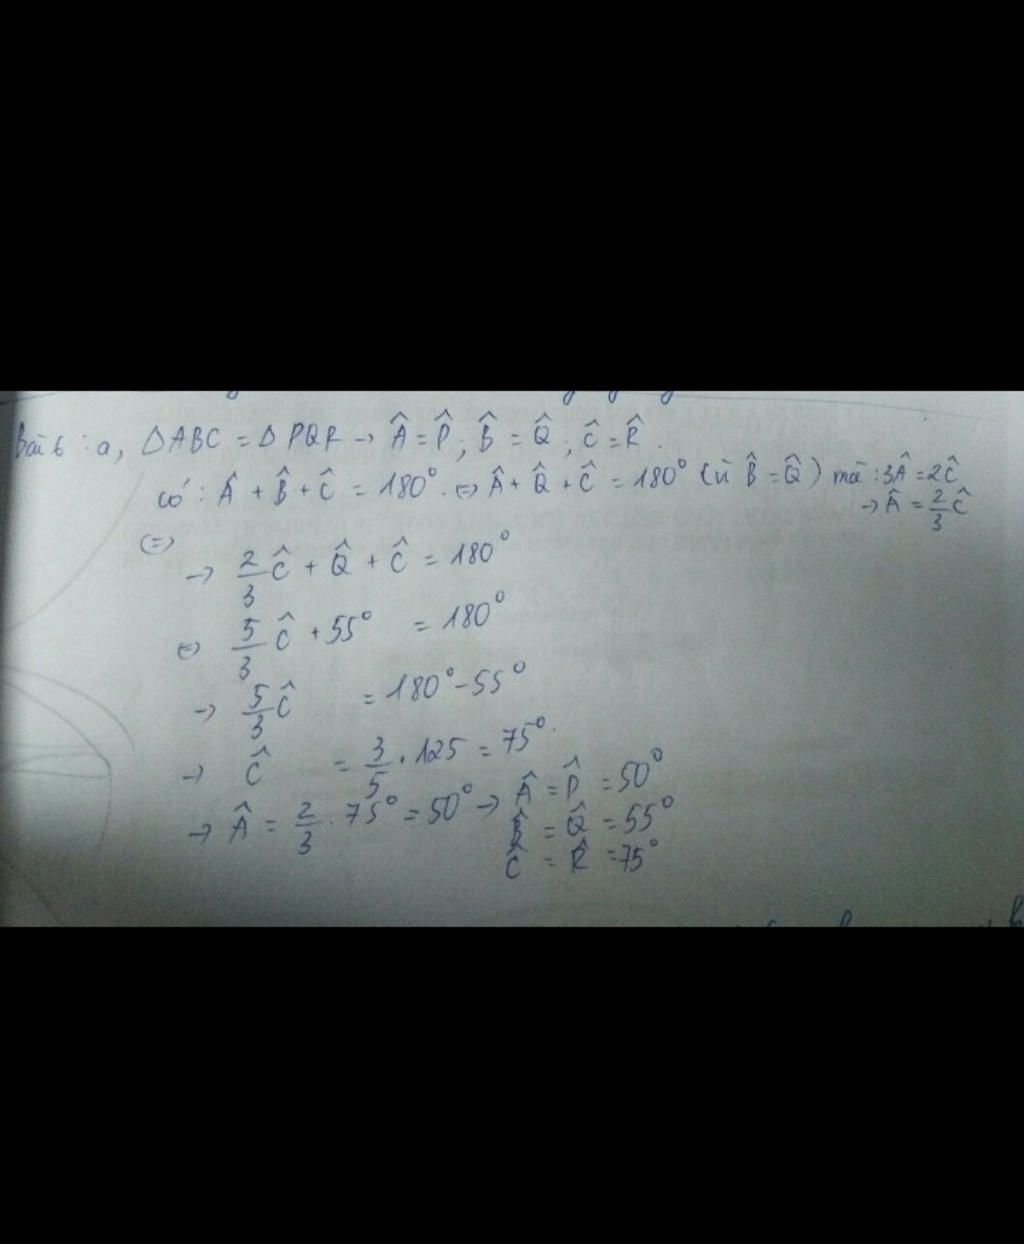 Bài 6 : a, △ABC = △PQR → Â = P̂ ; B̂ = Q̂ ; Ĉ = R̂ .
có : Â + B̂ + Ĉ = 180° . ⇔ Â + Q̂ + Ĉ = 180° (vì B̂ = Q̂ ) mà : 3Â = 2Ĉ
→ Â = 2/3 Ĉ
(=)
→ 2/3 Ĉ + Q̂ + Ĉ = 180°
⇔ 5/3 Ĉ + 55° = 180°
→ 5/3 Ĉ = 180° - 55°
→ Ĉ = 3/5 . 125 = 75° .
→ Â = 2/3 . 75° = 50° → Â = P̂ = 50°
B̂ = Q̂ = 55°
Ĉ = R̂ = 75°